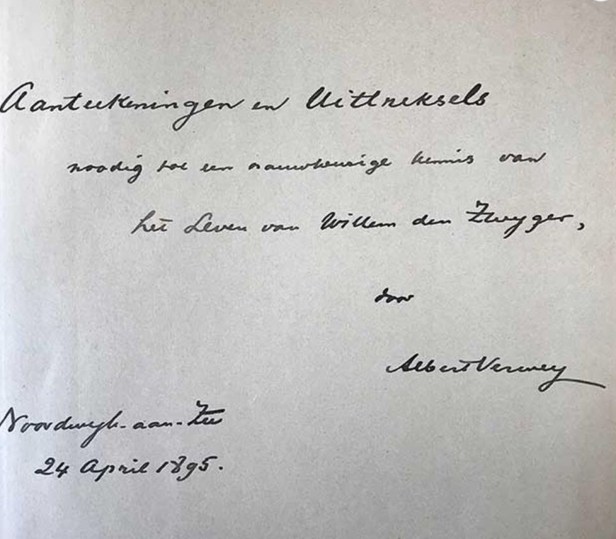 Aanteekeningen en Uittreksels
noodig tot een nauwkeurige kennis van
het Leven van Willem den Zwyger,
door
Albert Verwey
Noordwyk-aan-Zee
24 April 1895.